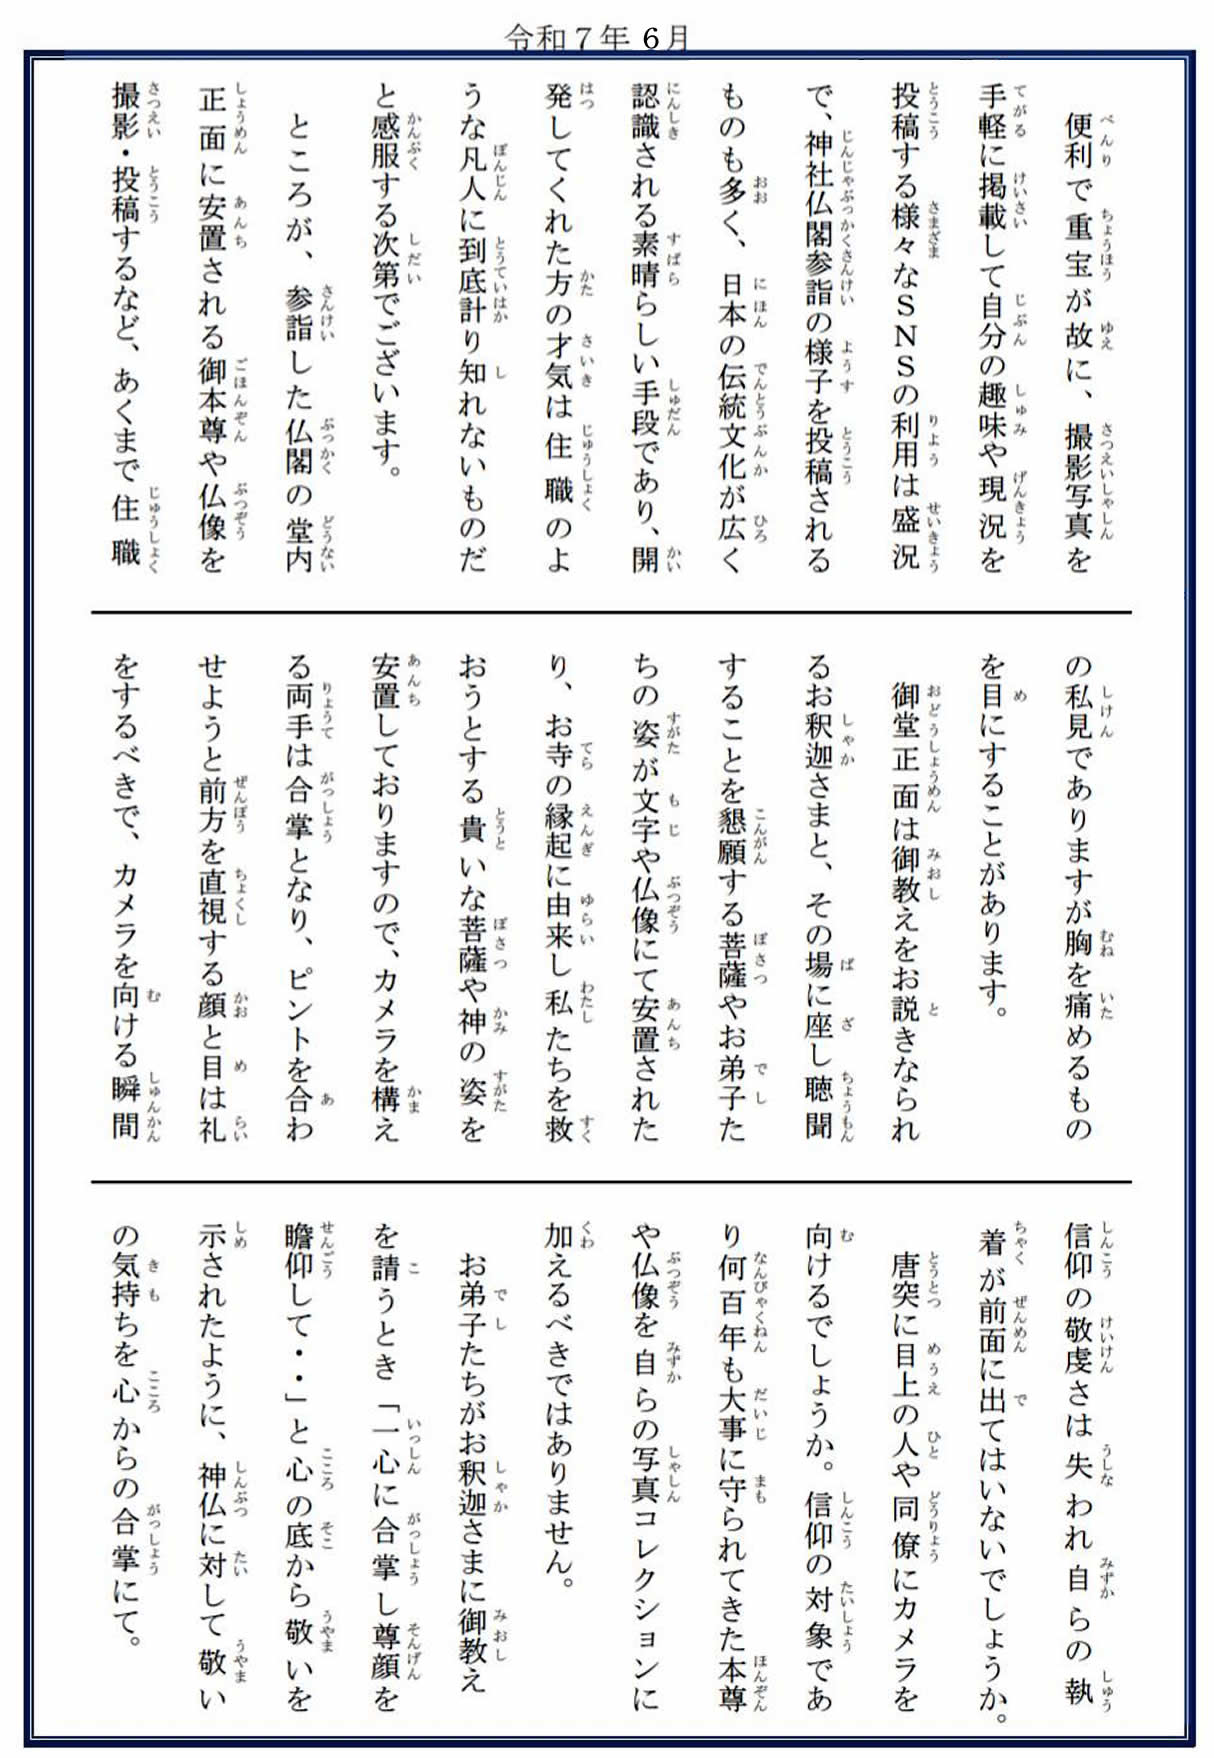 令和７年 6月
便利で重宝が故に、撮影写真を
手軽に掲載して自分の趣味や現況を
投稿する様々なＳＮＳの利用は盛況
で、神社仏閣参詣の様子を投稿される
ものも多く、日本の伝統文化が広く
認識される素晴らしい手段であり、開
発してくれた方の才気は住職のよ
うな凡人に到底計り知れないものだ
と感服する次第でございます。
ところが、参詣した仏閣の堂内
正面に安置される御本尊や仏像を
撮影・投稿するなど、あくまで住職
の私見でありますが胸を痛めるもの
を目にすることがあります。
御堂正面は御教えをお説きなられ
るお釈迦さまと、その場に座し聴聞
することを懇願する菩薩やお弟子た
ちの姿が文字や仏像にて安置された
り、お寺の縁起に由来し私たちを救
おうとする貴いな菩薩や神の姿を
安置しておりますので、カメラを構え
る両手は合掌となり、ピントを合わ
せようと前方を直視する顔と目は礼
をするべきで、カメラを向ける瞬間
信仰の敬虔さは失われ自らの執
着が前面に出てはいないでしょうか。
唐突に目上の人や同僚にカメラを
向けるでしょうか。信仰の対象であ
り何百年も大事に守られてきた本尊
や仏像を自らの写真コレクションに
加えるべきではありません。
お弟子たちがお釈迦さまに御教え
を請うとき「一心に合掌し尊顔を
瞻仰して・・」と心の底から敬いを
示されたように、神仏に対して敬い
の気持ちを心からの合掌にて。